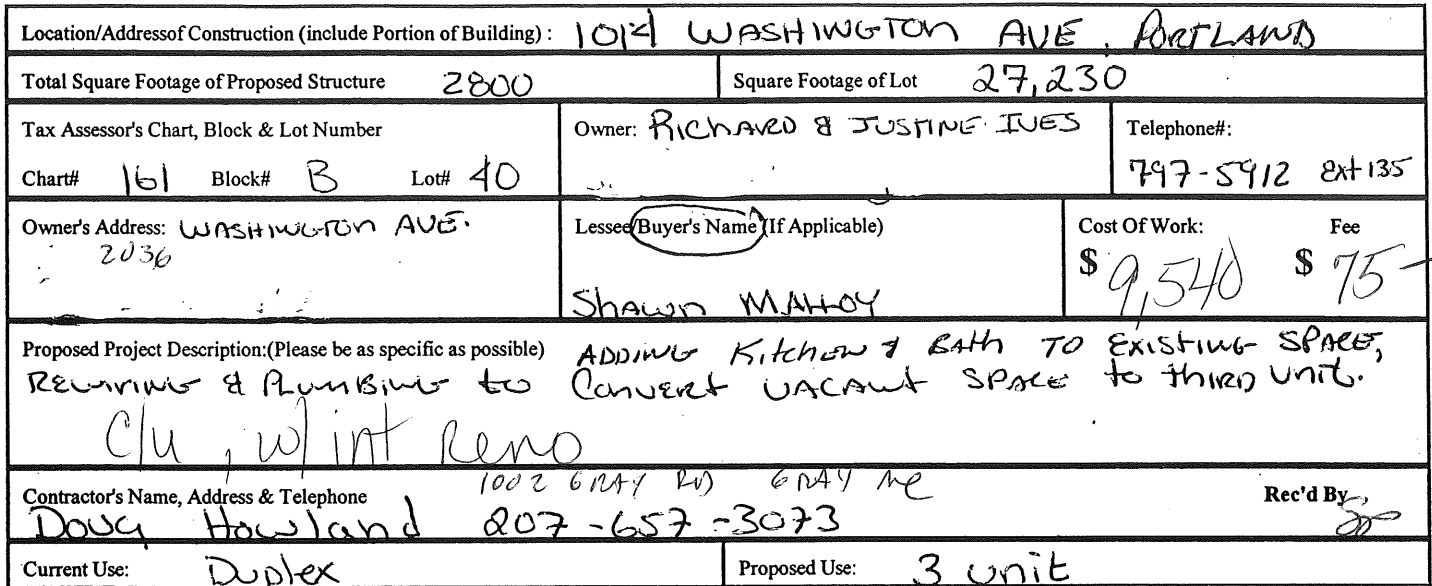 Location/Addressof Construction (include Portion of Building) : 1014 WASHINGTON AVE, PORTLAND
Total Square Footage of Proposed Structure 2800 Square Footage of Lot 27,230
Tax Assessor's Chart, Block & Lot Number Owner: RICHARD & JUSTINE IVES Telephone#:
Chart# 161 Block# B Lot# 40 797-5912 Ext 135
Owner's Address: WASHINGTON AVE. Lessee/Buyer's Name (If Applicable) Cost Of Work: Fee
2036 $ 9,540 $ 75-
Shawn MALLOY
Proposed Project Description:(Please be as specific as possible) ADDING Kitchen & BATH TO EXISTING SPACE,
REWIRING & PLUMBING to CONVERT VACANT SPACE to THIRD UNIT.
C/U, w/ int Reno
1002 GRAY RD GRAY ME
Contractor's Name, Address & Telephone Rec'd By
Doug Howland 207-657-3073
Current Use: Duplex Proposed Use: 3 unit